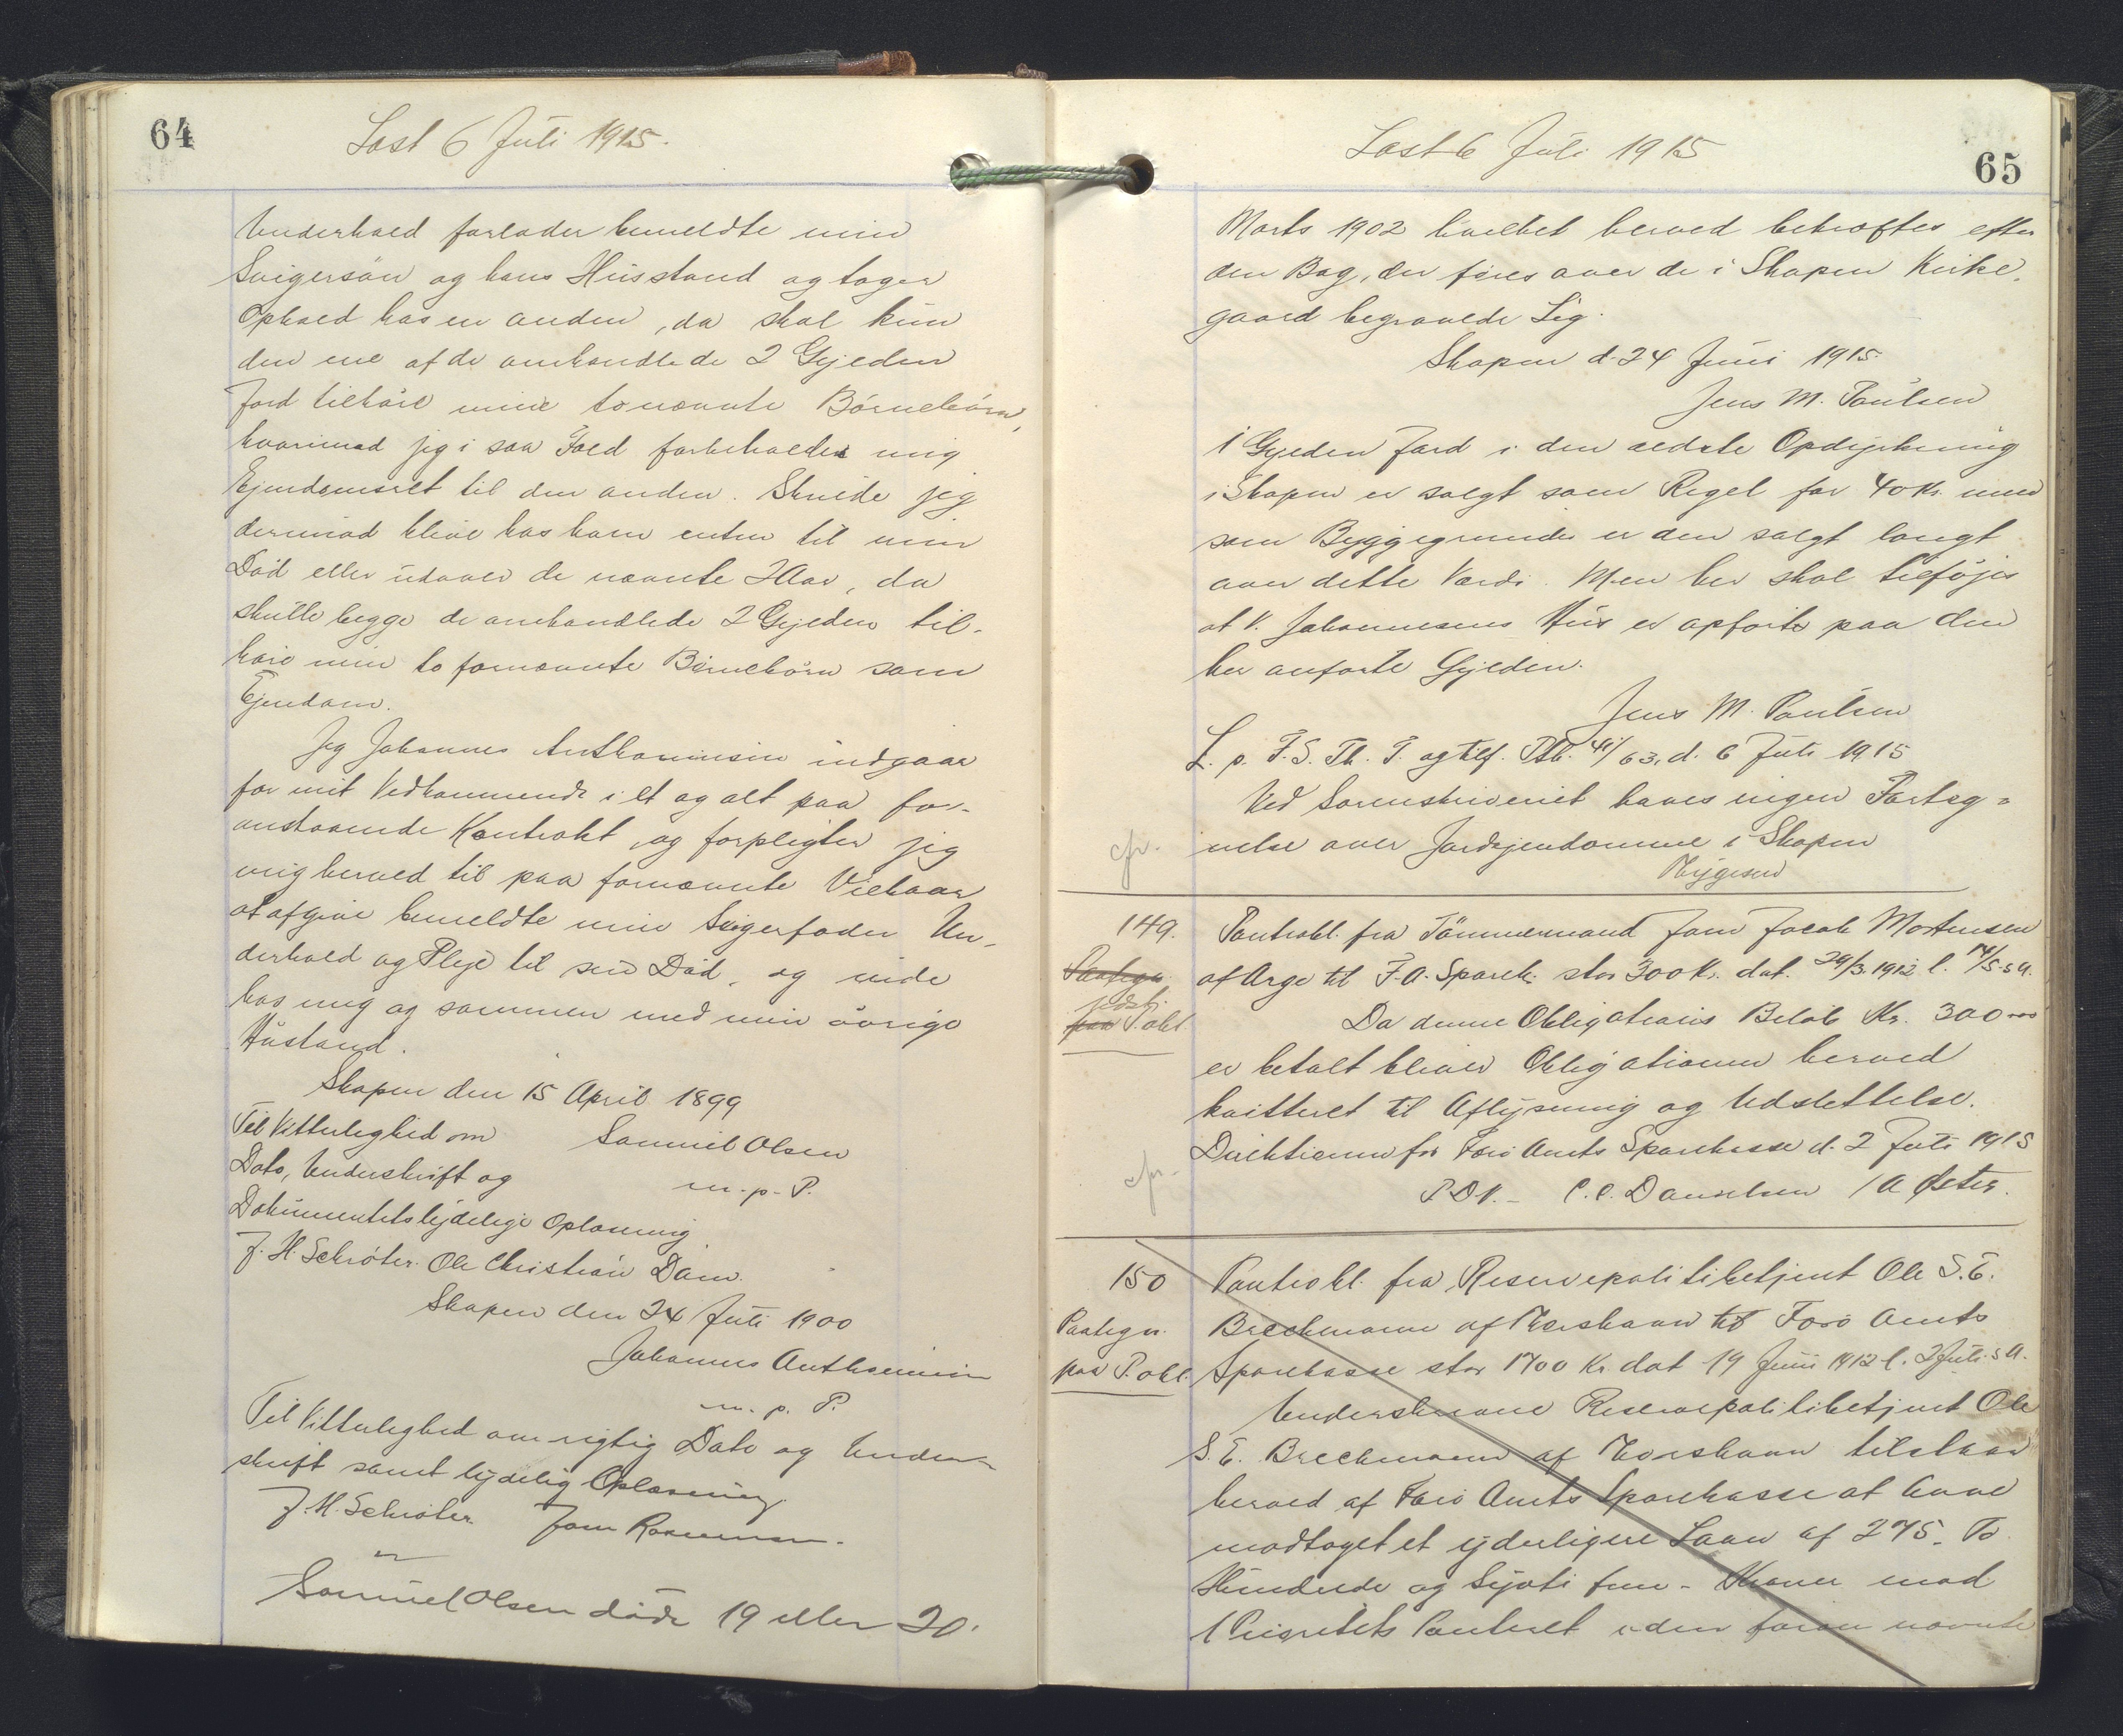 64
Læst 6 Juli 1915.
Underhold forlader bemeldte min
Svigersön og hans Husstand og tager
Ophold hos en anden, da skal kun
den ene af de omhandlede 2 Gyjeden
Jord tilhöre mine to nævnte Börnebörn,
hvorimod jeg i saa Fald forbeholder mig
Ejendomsret til den anden. Skulde jeg
derimod blive hos ham enten til min
Död eller udover de nævnte 2 Aar, da
skulle begge de omhandlede 2 Gyjeden til-
höre min to fornævnte Börnebörn som
Ejendom.
Jeg Johannes Anthoniusen indgaar
for mit Vedkommende i et og alt paa for-
anstaaende Kontrakt, og forpligter jeg
mig herved til paa fornævnte Vilkaar
at afgive bemeldte min Svigerfader Un-
derhold og Pleje til sin Död, og inde
hos mig og sammen med min övrige
Hustand.
Skopen den 15 April 1899
Til Vitterlighed om Samuel Olsen
Dato, Underskrift og m. p. P.
Dokumentets lydelige Oplæsning
J. H. Schröter. Ole Christian Dam.
Skopen den 24 Juli 1900
Johannes Anthoniusen
m. p. P.
Til Vitterlighed om rigtig Dato og Under-
skrift samt lydelig Oplæsning.
J. H. Schröter Joen Rasmussen.
Samuel Olsen döde 19 eller 20.
65
Læst 6 Juli 1915
Marts 1902 hvilket herved bekræftes efter
den Bog, der föres over de i Skopen Kirke-
gaard begravede Lig.
Skopen d. 24 Juni 1915.
Jens M. Poulsen
1 Gyjeden Jord i den ældste Opdyrkning
i Skopen er solgt som Regel for 40 Kr. men
som Byggegrunde er den solgt langt
over dette Værdi. Men her skal tilföjes
at V. Johannesens Hus er opfört paa den
her anförte Gyjeden.
Jens M. Poulsen
L. p. F. S. Th. T. og tilf. Ptb. 41/63, d. 6 Juli 1915
Ved Sorenskriveriet haves ingen Forteg=
cfr. nelse over Jordejendomme i Skopen
149. Pantobl. fra Tömmermand Joen Jacob Mortensen
af Arge til F. A. Sparek. stor 300 Kr. dat. 29/3. 1912 l. 14/5. s. A.
Da denne Obligations Belöb Kr. 300
er betalt bliver Obligationen herved
kvitteret til Aflysning og Udslettelse.
Direktionen for Færö Amts Sparekasse d. 2 Juli 1915
cfr. P.D.V. - C. C. Danielsen / A Öster.
150 Pantobl. fra Reservepolitibetjent Ole S. E.
Paategn. Breckmann af Thorshavn til Færö Amts
paa P. obl. Sparekasse stor 1700 Kr dat 19 Juni 1912 l. 2 Juli s. A.
Underskrevne Reservepolitibetjent Ole
S. E. Breckmann af Thorshavn tilstaar
herved af Færö Amts Sparekasse at have
modtaget et yderligere Laan af 275. To
Hundrede og Syvti fem - Kroner mod
1 Prioritets Panteret i den foran nævnte